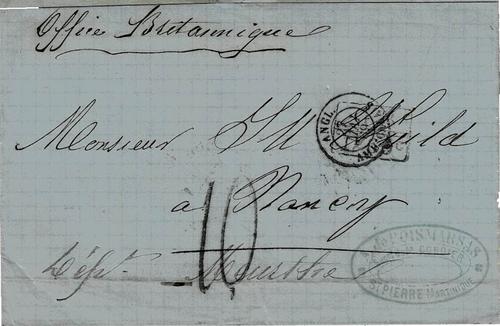 Office Britannique
Monsieur J H Wild
a Nancy
10
Dépt. Meurthe
ANGL. AMB.
ST PIERRE MARTINIQUE